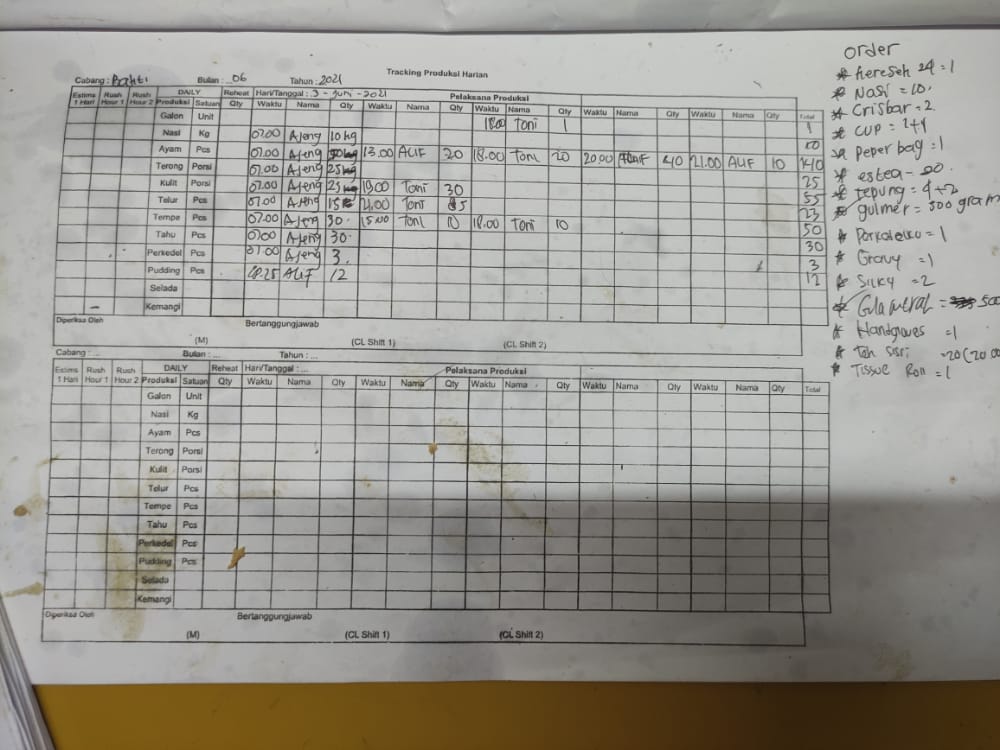 Tracking Produksi Harian
Cabang : Bakti Bulan : 06 Tahun : 2021
Estims 1 Hari Rush Hour 1 Rush Hour 2 DAILY Reheat Hari/Tanggal : 3 - Juni - 2021 Pelaksana Produksi
Produksi Satuan Qty Waktu Nama Qty Waktu Nama Qty Waktu Nama Qty Waktu Nama Qty Waktu Nama Qty Total
Galon Unit 18.00 Toni 1 1
Nasi Kg 07.00 Ajeng 10 kg 10
Ayam Pcs 07.00 Ajeng 13.00 ALIF 20 18.00 Toni 20 20.00 40 21.00 ALIF 10 140
Terong Porsi 07.00 Ajeng 25 25
Kulit Porsi 07.00 Ajeng 25 19.00 Toni 30 55
Telur Pcs 07.00 Ajeng 15 21.00 Toni 23
Tempe Pcs 07.00 Ajeng 30. 15.00 Toni 10 18.00 Toni 10 50
Tahu Pcs 07.00 Ajeng 30. 30
Perkedel Pcs 07.00 Ajeng 3. 3
Pudding Pcs ALIF 12 12
Selada
Kemangi
Diperiksa Oleh Bertanggungjawab
(M) (CL Shift 1) (CL Shift 2)
Cabang : ... Bulan : ... Tahun : ...
Estims 1 Hari Rush Hour 1 Rush Hour 2 DAILY Reheat Hari/Tanggal : ... Pelaksana Produksi
Produksi Satuan Qty Waktu Nama Qty Waktu Nama Qty Waktu Nama Qty Waktu Nama Qty Waktu Nama Qty Total
Galon Unit
Nasi Kg
Ayam Pcs
Terong Porsi
Kulit Porsi
Telur Pcs
Tempe Pcs
Tahu Pcs
Perkedel Pcs
Pudding Pcs
Selada
Kemangi
Diperiksa Oleh Bertanggungjawab
(M) (CL Shift 1) (CL Shift 2)
order
* kereseh 24 = 1
* Nasi = 10.
* Crisbar = 2
* cup = 2+1
* peper bag = 1
* estea -
* tepung = 4+2
* gulmer = 500 gram
* = 1
* Gravy = 1
* Silky = 2
* = 500
* Handgloves = 1
* Teh Sisri = 20 (20.00
* Tissue Roll = 1